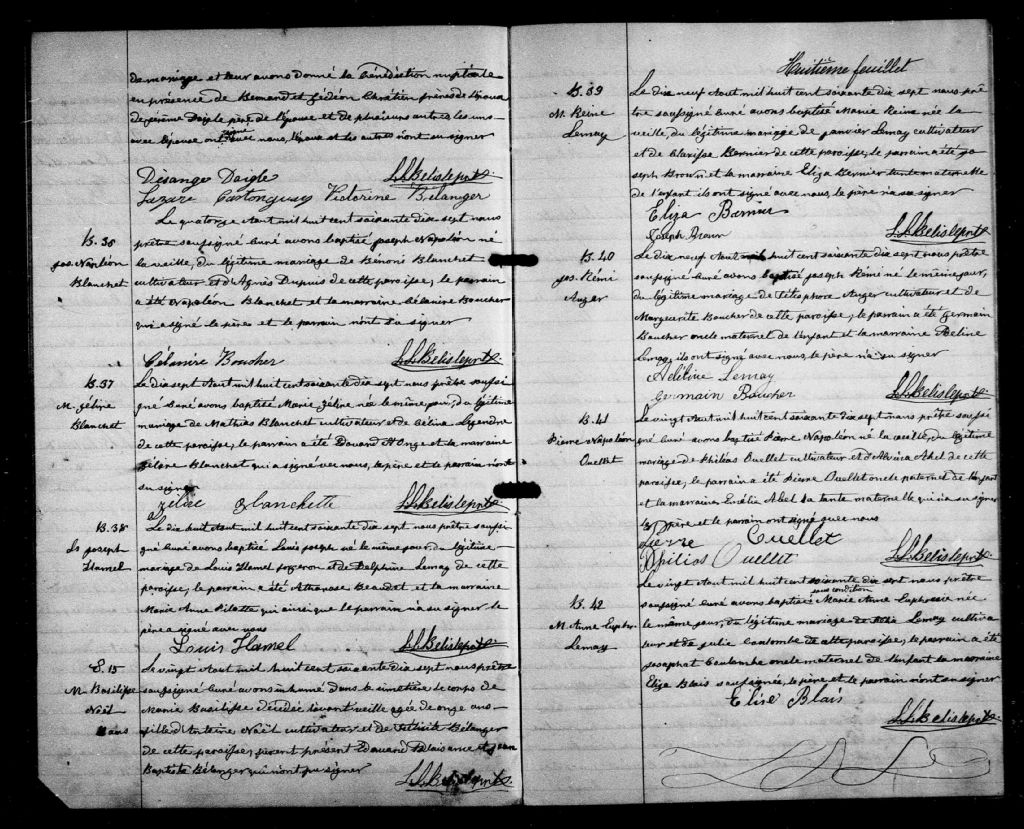 de mariage et leur avons donné la bénédiction nuptiale
en présence de Bernard et Gédéon Chrétien frères de l'époux
de Jérôme Daigle père de l'épouse et de plusieurs autres les uns
avec l'épouse ont signé avec nous, l'époux et les autres n'ont su signer
Désange Daigle
L.L.Belisle ptre
Lazare Castonguay Victorine Bélanger
B. 36
Jos. Napoléon
Blanchet
Le quatorze Aout mil huit cent soixante dix sept nous
prêtre soussigné Curé avons baptisé Joseph Napoléon né
la veille, du légitime mariage de Bénoni Blanchet
cultivateur et d'Agnès Dupuis de cette paroisse, le parrain
a été Napoléon Blanchet et la marraine Célanire Boucher
qui a signé le père et le parrain n'ont su signer
Célanire Boucher
L.L.Belisle ptre
B. 37
M. Zéline
Blanchet
Le dix sept Aout mil huit cent soixante dix sept nous prêtre soussi
gné Curé avons baptisé Marie Zéline née le même jour, du légitime
mariage de Mathias Blanchet cultivateur et de Célina Legendre
de cette paroisse, le parrain a été Edouard St Onge et la marraine
Zélire Blanchet qui a signé avec nous, le père et le parrain n'ont
su signer
Zélire Blanchette
L.L.Belisle ptre
B. 38
Ls Joseph
Hamel
Le dix huit Aout mil huit cent soixante dix sept nous prêtre soussi
gné Curé avons baptisé Louis Joseph né le même jour, du légitime
mariage de Louis Hamel forgeron et de Delphine Lemay de cette
paroisse, le parrain a été Athanase Beaudet et la marraine
Marie Anne Pilotte qui ainsi que le parrain n'a su signer le
père a signé avec nous
Louis Hamel
L.L.Belisle ptre
S. 15
M. Basilisse
Noël
ans
Le vingt Aout mil huit cent soixante dix sept nous prêtre
soussigné Curé avons inhumé dans le cimetière le corps de
Marie Basilisse décédée l'avant veille agée de onze ans
fille d'Antoine Noël cultivateur et de Félicité Bélanger
de cette paroisse, furent présent Edouard Blais et Jean
Baptiste Bélanger qui n'ont pu signer
L.L.Belisle ptre
Huitième feuillet
B. 39
M. Reine
Lemay
Le dix neuf Aout mil huit cent soixante dix sept nous prê
tre soussigné Curé avons baptisé Marie Reine née la
veille, du légitime mariage de Janvier Lemay cultivateur
et de Clarisse Bernier de cette paroisse, le parrain a été Jo
seph Brown et la marraine Eliza Bernier tante maternelle
de l'enfant ils ont signé avec nous, le père n'a su signer
Eliza Bernier
Joseph Brown
L.L.Belisle ptre
B. 40
Jos. Rémi
Auger
Le dix neuf Aout mil huit cent soixante dix sept nous prêtre
soussigné Curé avons baptisé Joseph Rémi né le même jour,
du légitime mariage de Télesphore Auger cultivateur et de
Marguerite Boucher de cette paroisse, le parrain a été Germain
Boucher oncle maternel de l'enfant et la marraine Adéline
Lemay, ils ont signé avec nous, le père n'a su signer
Adéline Lemay
Germain Boucher
L.L.Belisle ptre
B. 41
Pierre Napoléon
Ouellet
Le vingt Aout mil huit cent soixante dix sept nous prêtre soussi
gné Curé avons baptisé Pierre Napoléon né la veille, du légitime
mariage de Philéas Ouellet cultivateur et d'Alvira Abel de cette
paroisse, le parrain a été Pierre Ouellet oncle paternel de l'enfant
et la marraine Emélie Abel sa tante maternelle qui n'a su signer
le père et le parrain ont signé avec nous
Pierre Ouellet
Philias Ouellet
L.L.Belisle ptre
B. 42
M. Anne Euphr.
Lemay
Le vingt Aout mil huit cent soixante dix sept nous prêtre
soussigné Curé avons baptisé sous condition Marie Anne Euphrosie née
le même jour, du légitime mariage de Lemay cultiva
teur et de Julie Coulombe de cette paroisse, le parrain a été
Josaphat Coulombe oncle maternel de l'enfant la marraine
Elize Blais soussignée, le père et le parrain n'ont su signer
Elise Blais
L.L.Belisle ptre